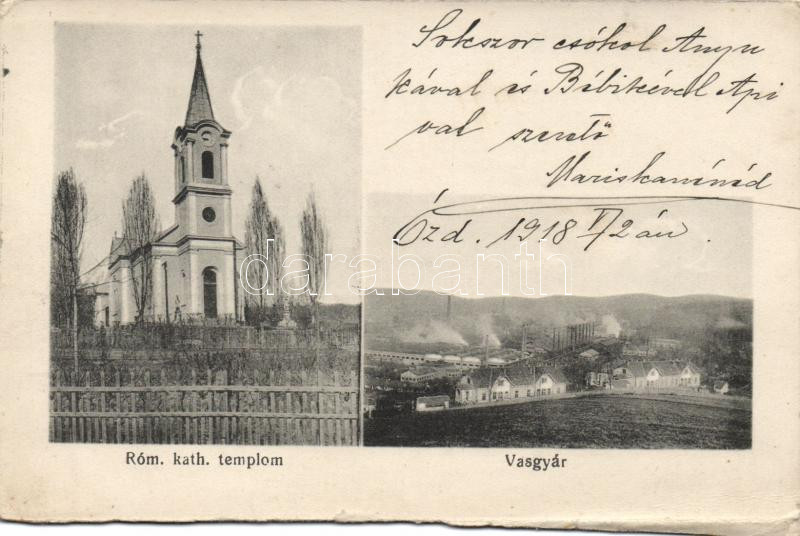 Sokszor csókol Anyu
kával és Bébikével Api
val szerető
Mariskanénéd
Ózd. 1918 V/2 án.
darabanth.com
Róm. kath. templom
Vasgyár